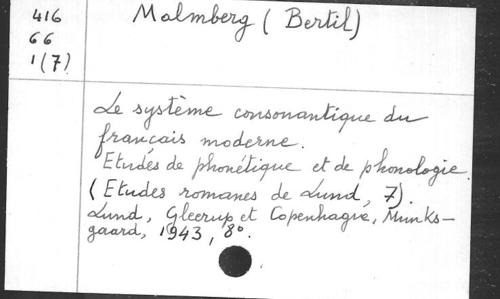 416
66
1(7)
Malmberg (Bertil)
Le système consonantique du
français moderne.
Etudes de phonétique et de phonologie.
(Etudes romanes de Lund, 7).
Lund, Gleerup et Copenhague, Munks-
gaard, 1943, 8º.